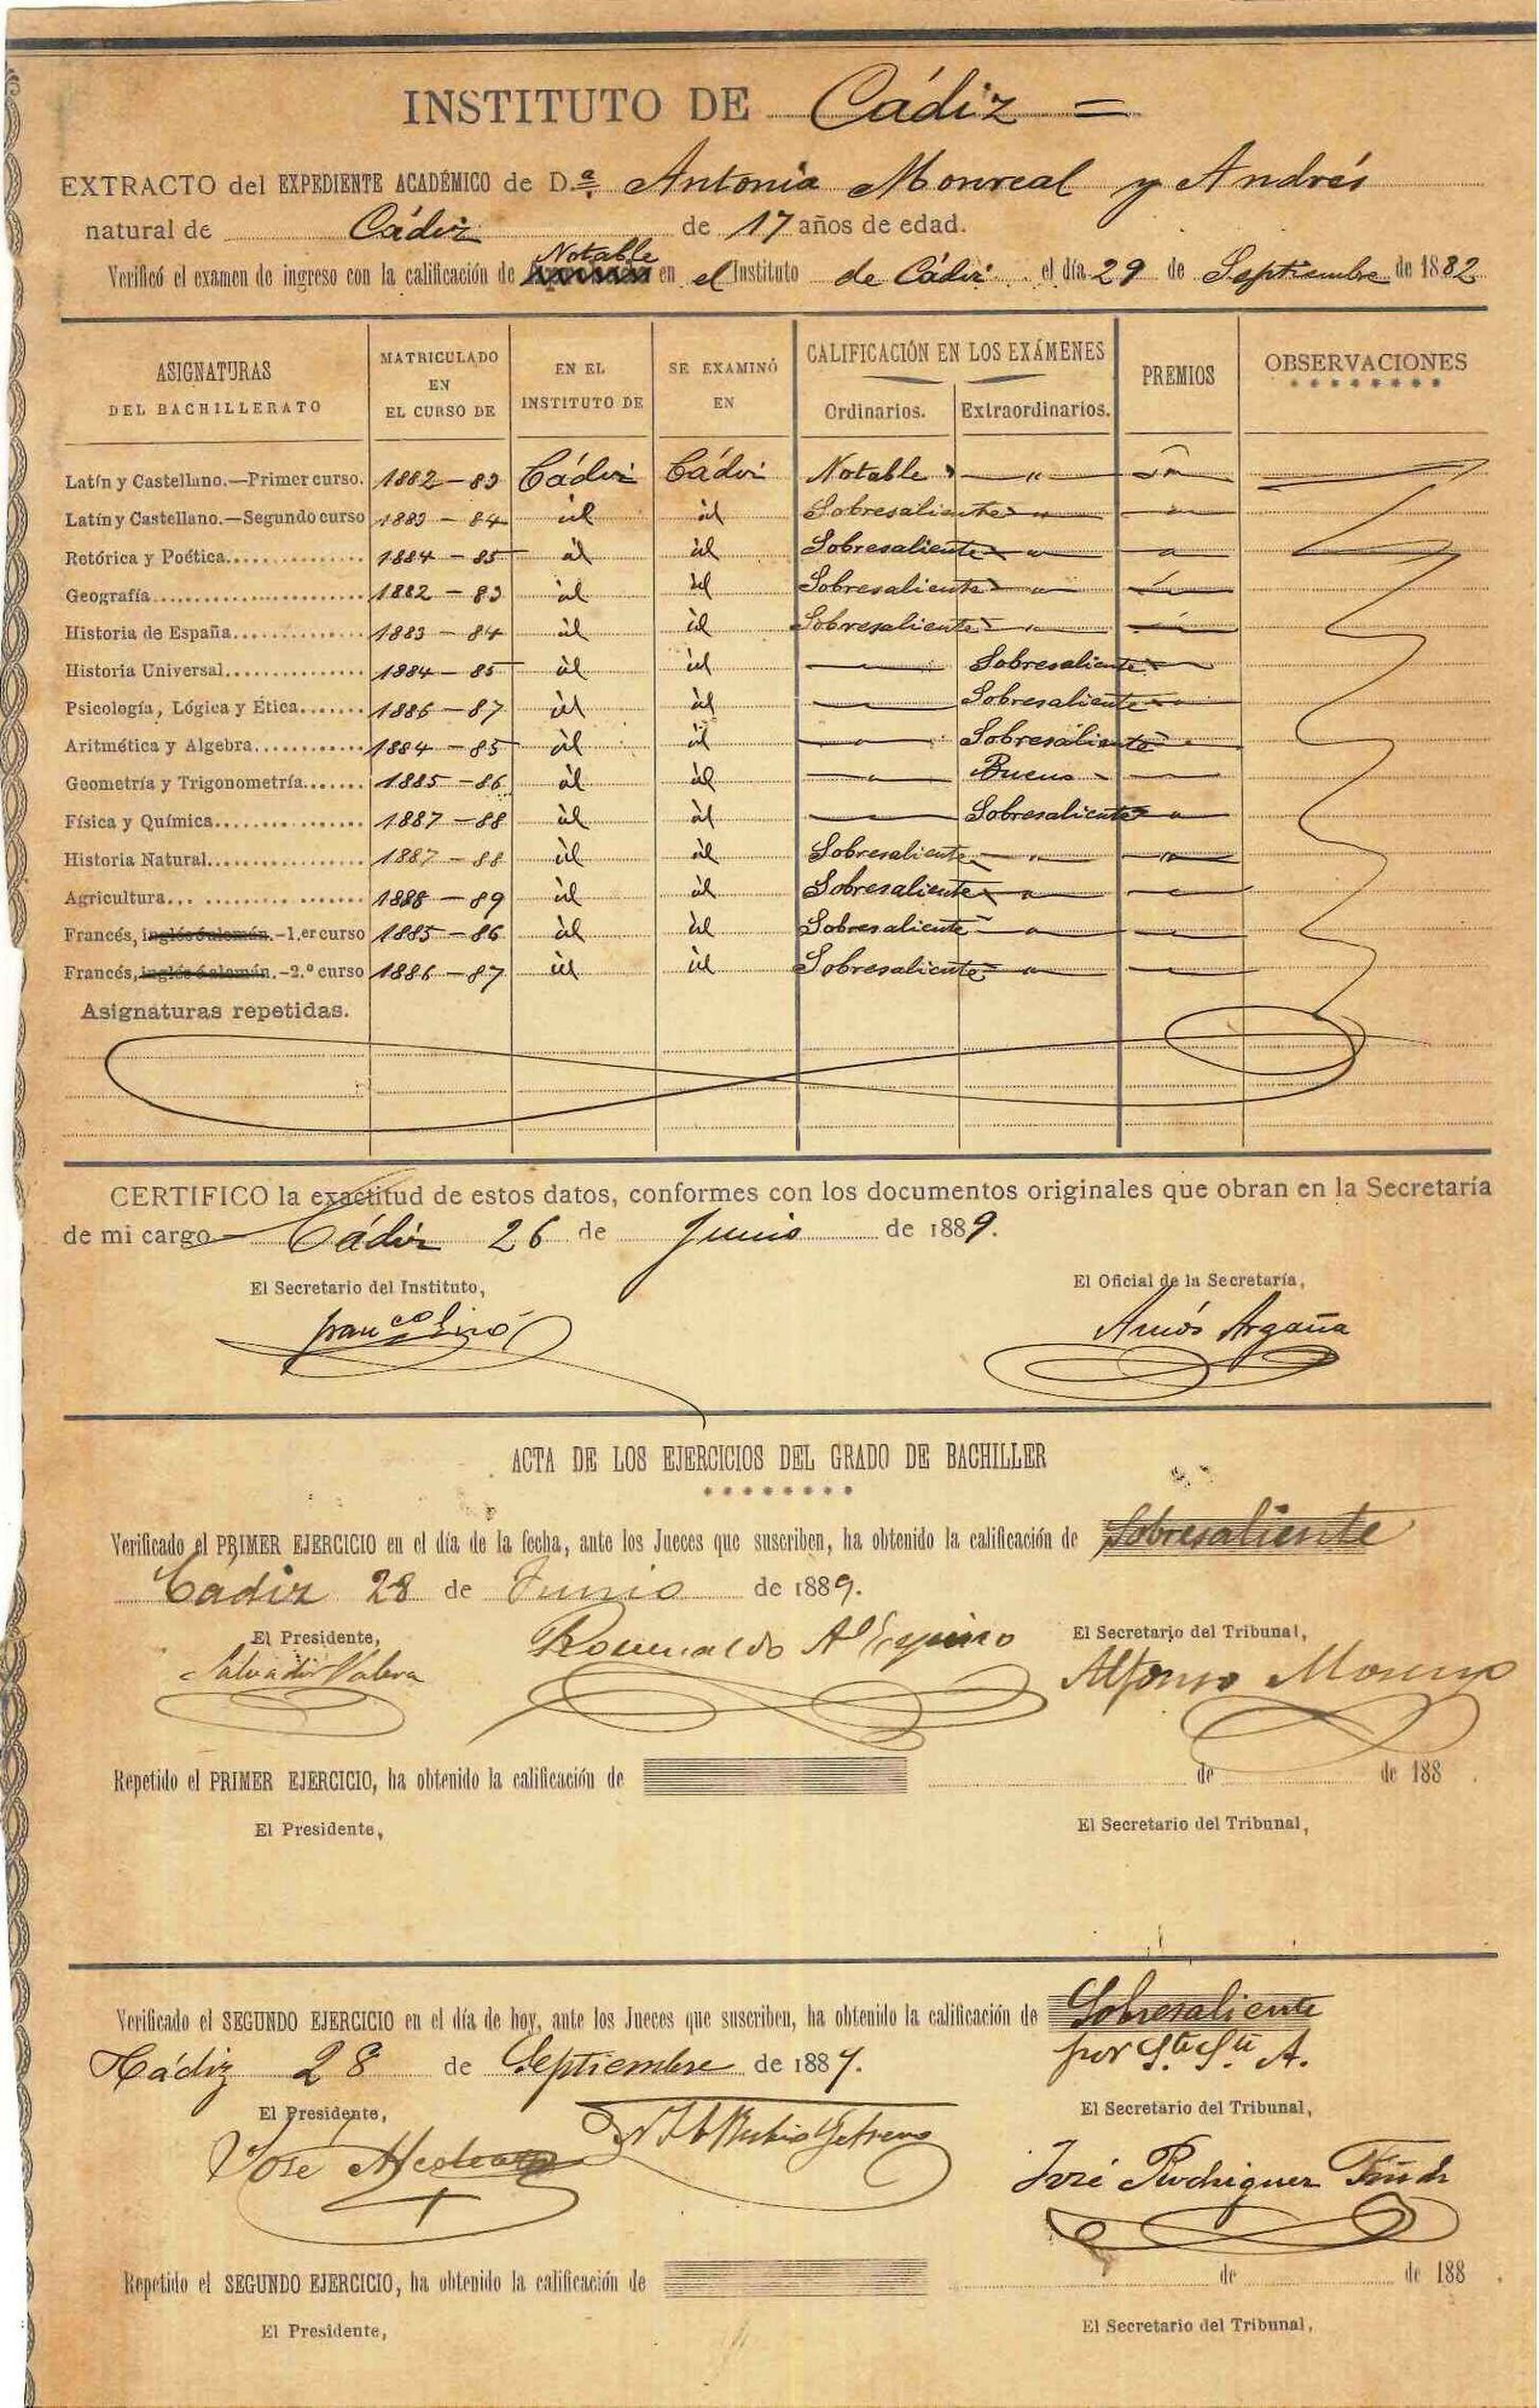 INSTITUTO DE Cádiz =
EXTRACTO del EXPEDIENTE ACADÉMICO de D.ª Antonia Monreal y Andrés
natural de Cádiz de 17 años de edad.
Notable
Verificó el examen de ingreso con la calificación de en el Instituto de Cádiz el día 29 de Septiembre de 1882
ASIGNATURAS DEL BACHILLERATO MATRICULADO EN EL CURSO DE EN EL INSTITUTO DE SE EXAMINÓ EN CALIFICACIÓN EN LOS EXÁMENES Ordinarios. Extraordinarios. PREMIOS OBSERVACIONES
Latín y Castellano.—Primer curso. 1882-83 Cádiz Cádiz Notable "
Latín y Castellano.—Segundo curso 1883-84 id id Sobresaliente "
Retórica y Poética 1884-85 id id Sobresaliente "
Geografía 1882-83 id id Sobresaliente "
Historia de España 1883-84 id id Sobresaliente "
Historia Universal 1884-85 id id Sobresaliente
Psicología, Lógica y Ética 1886-87 id id Sobresaliente
Aritmética y Algebra 1884-85 id id " Sobresaliente
Geometría y Trigonometría 1885-86 id id " Bueno
Física y Química 1887-88 id id Sobresaliente
Historia Natural 1887-88 id id Sobresaliente "
Agricultura 1888-89 id id Sobresaliente "
Francés, inglés ó alemán.-1.er curso 1885-86 id id Sobresaliente "
Francés, inglés ó alemán.-2.º curso 1886-87 id id Sobresaliente "
Asignaturas repetidas.
CERTIFICO la exactitud de estos datos, conformes con los documentos originales que obran en la Secretaría
de mi cargo Cádiz 26 de Junio de 1889.
El Secretario del Instituto, El Oficial de la Secretaría,
Amós Argaña
ACTA DE LOS EJERCICIOS DEL GRADO DE BACHILLER
Verificado el PRIMER EJERCICIO en el día de la fecha, ante los Jueces que suscriben, ha obtenido la calificación de Sobresaliente
Cádiz 28 de Junio de 1889.
El Presidente, El Secretario del Tribunal,
Salvador Valera Romualdo Alfonso Moreno
Repetido el PRIMER EJERCICIO, ha obtenido la calificación de de de 188 .
El Presidente, El Secretario del Tribunal,
Verificado el SEGUNDO EJERCICIO en el día de hoy, ante los Jueces que suscriben, ha obtenido la calificación de Sobresaliente
Cádiz 28 de Septiembre de 1889. por A.
El Presidente, El Secretario del Tribunal,
José José Rodriguez
Repetido el SEGUNDO EJERCICIO, ha obtenido la calificación de de de 188 .
El Presidente, El Secretario del Tribunal,